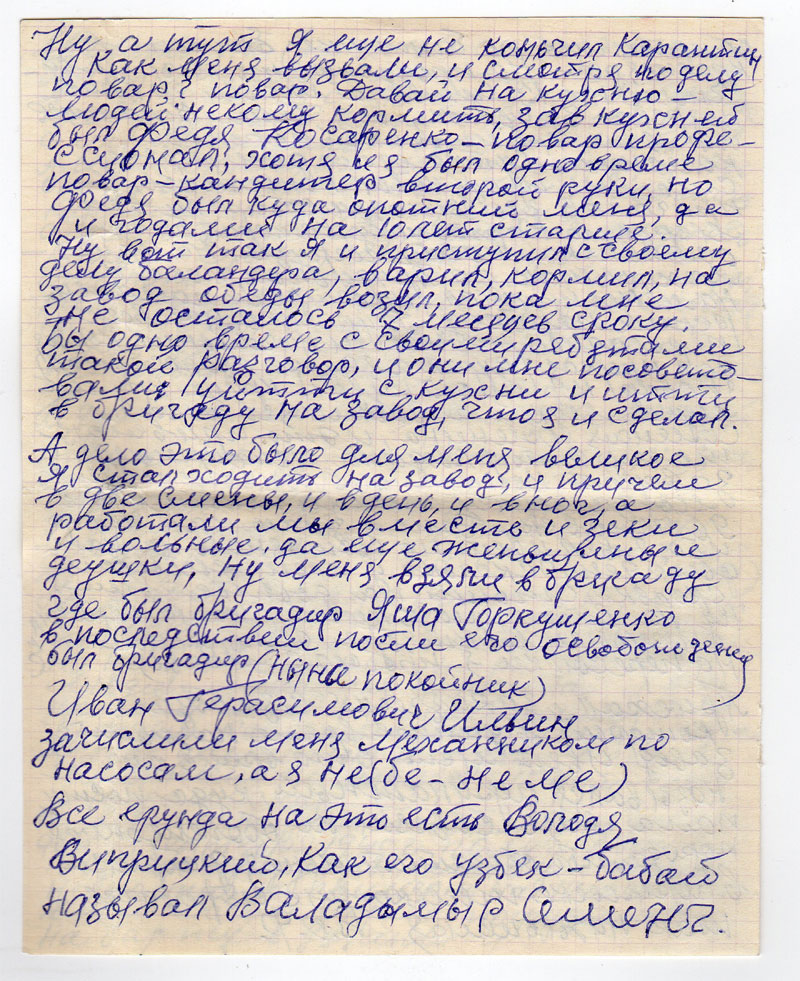 Ну а тут я еще не коньчил карантин
как меня вызвали, и смотря по делу
повар? повар. Давай на кухню –
людей некому кормить, зав кухней
был Федя Косаренко – повар профе-
ссионал, хотя и я был одно время
повар-кандитер второй руки, но
Федя был куда опотний меня, да
и годами на 10 лет старше.
Ну вот так я и приступил с своему
делу баландера, варил, кормил, на
завод обеды возил, пока мне
не осталось 7 месяцев сроку.
Бы одно време с своими ребятами
такой разговор, и они мне посовето-
вали уйтти с кухни и итти
в бригаду на завод, что я и сделал.
А дело это было для меня великое
я стал ходить на завод, и причем
в две смены, и в день, и в ноч, а
работали мы вместь и зеки
и вольные, да еще женьщины и
деушки, ну меня взяли в бригаду
где был бригадир Яша Горкушенко
в посредствеи посли его освобождения
был бригадир (ныни покойник)
Иван Герасимович Ильин
зачислили меня механником по
насосам, а я не (бе – не ме)
Все ерунда на это есть Володя
Виприцкий, как его узбек – бабай
называл Валадымыр Семены.